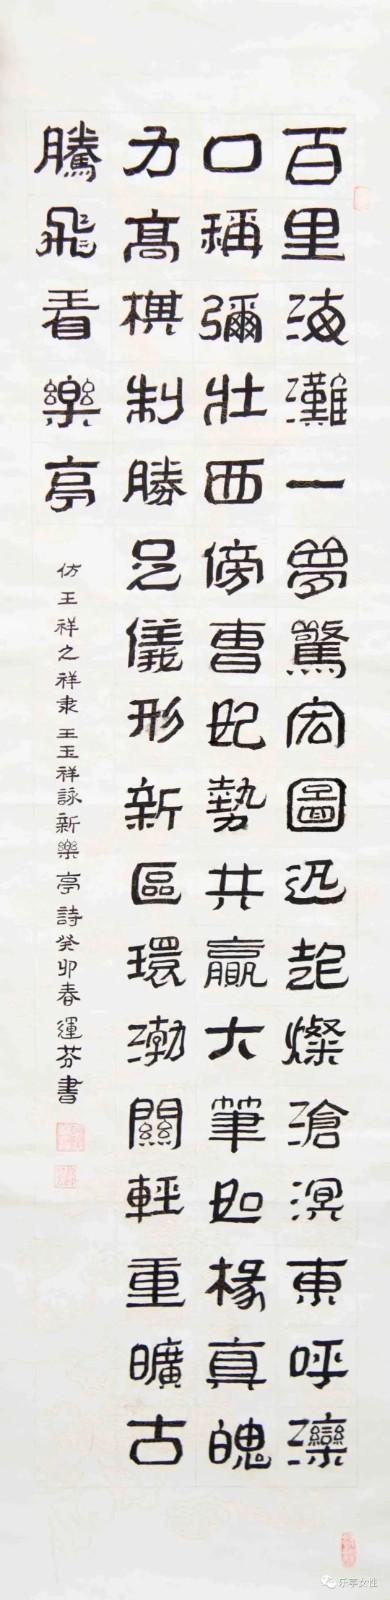 百里海灘一夢驚宏圖迅起燦滄溟東呼灤
口稱彌壯西傍曹妃勢共贏大筆如椽真魄
力高棋制勝足儀形新區環渤關輕重曠古
騰飛看樂亭
仿王祥之祥隶王玉祥詠新樂亭詩癸卯春運芬書
乐亭女性